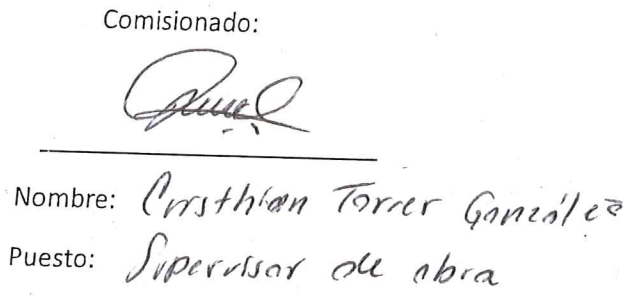 Comisionado:
Nombre: Cristhian Torres González
Puesto: Supervisor de obra